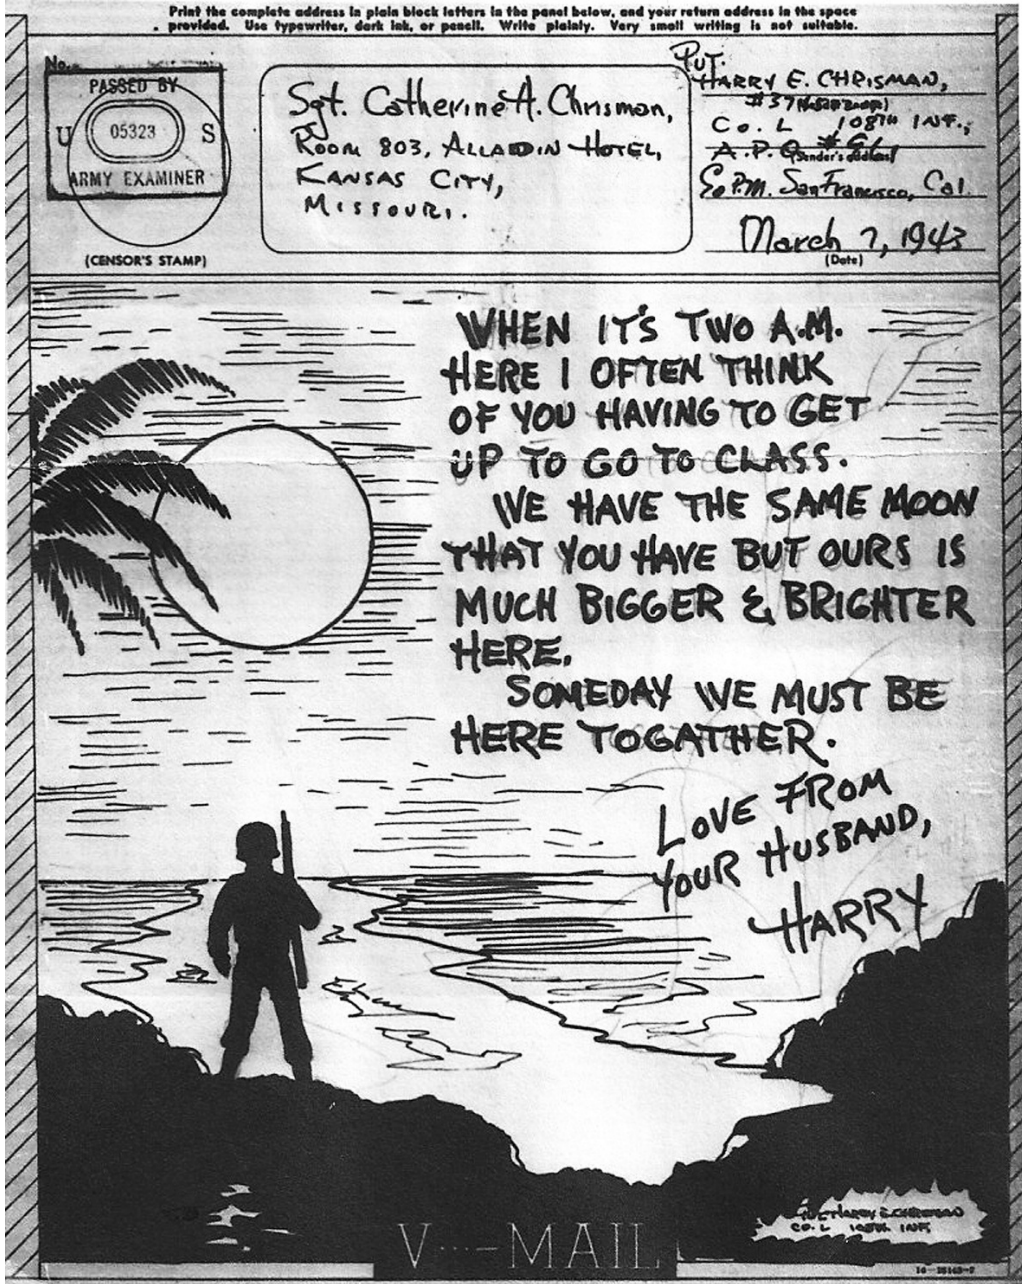 Print the complete address in plain block letters in the panel below, and your return address in the space
provided. Use typewriter, dark ink, or pencil. Write plainly. Very small writing is not suitable.
No.
PASSED BY
U 05323 S
ARMY EXAMINER
(CENSOR'S STAMP)
Sgt. Catherine A. Chrisman,
ROOM 803, ALLADDIN HOTEL,
KANSAS CITY,
MISSOURI.
Pvt.
HARRY E. CHRISMAN,
Co. L 108TH INF.,
A.P.O. #
(Sender's address)
℅ P.M. San Francisco, Cal.
March 7, 1943
(Date)
WHEN IT'S TWO A.M.
HERE I OFTEN THINK
OF YOU HAVING TO GET
UP TO GO TO CLASS.
WE HAVE THE SAME MOON
THAT YOU HAVE BUT OURS IS
MUCH BIGGER & BRIGHTER
HERE.
SOMEDAY WE MUST BE
HERE TOGATHER.
LOVE FROM
YOUR HUSBAND,
HARRY
HARRY E. CHRISMAN
CO. L 108TH INF.
V···—MAIL